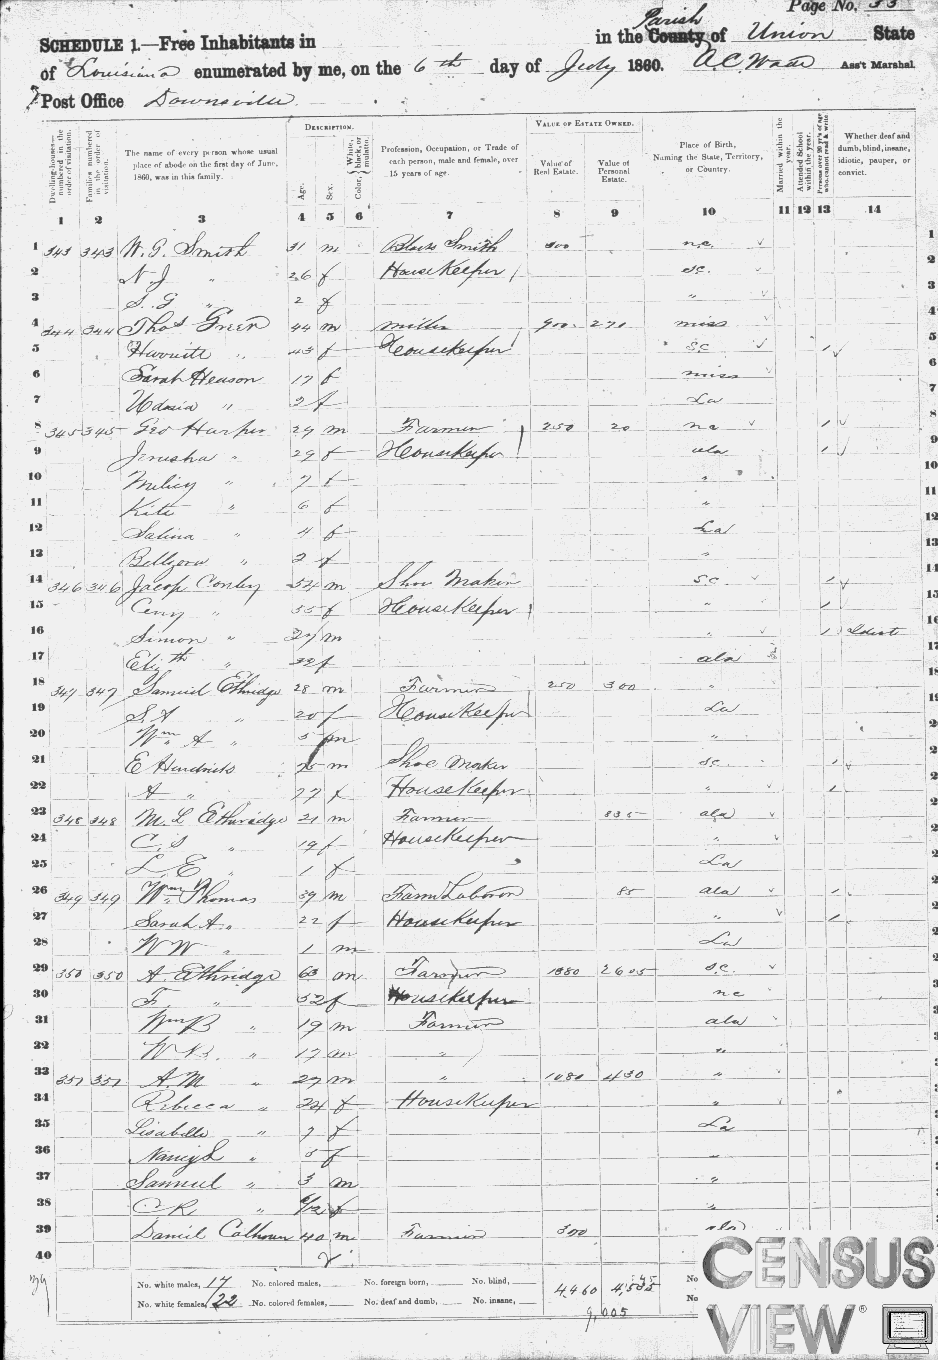 Page No. 53
SCHEDULE 1.—Free Inhabitants in in the County Parish of Union State
of Louisiana enumerated by me, on the 6th day of July 1860. A.C. Wade Ass't Marshal.
Post Office Downsville
DESCRIPTION. VALUE OF ESTATE OWNED.
Dwelling-houses—numbered in the order of visitation. Families numbered in the order of visitation. The name of every person whose usual place of abode on the first day of June, 1860, was in this family. Age. Sex. Color, White, black, or mulatto. Profession, Occupation, or Trade of each person, male and female, over 15 years of age. Value of Real Estate. Value of Personal Estate. Place of Birth, Naming the State, Territory, or Country. Married within the year. Attended School within the year. Persons over 20 y'rs of age who cannot read & write. Whether deaf and dumb, blind, insane, idiotic, pauper, or convict.
1 2 3 4 5 6 7 8 9 10 11 12 13 14
1 343 343 W. G. Smith 31 m Black Smith 300 n.c. 1
2 N. J " 26 f House Keeper sc. 2
3 S. G " 2 f " 3
4 344 344 Thos Green 44 m miller 900 270 miss 4
5 Harriett " 43 f House Keeper sc 1 5
6 Sarah Henson 17 f miss 6
7 " 2 f La 7
8 345 345 Geo Harper 29 m Farmer 250 20 nc 1 8
9 Jerusha " 29 f House Keeper ala 1 9
10 Milicy " 7 f " 10
11 Kite " 6 f " 11
12 Salina " 4 f La 12
13 " 2 f " 13
14 346 346 Jacop Conley 54 m Shoe Maker sc 1 14
15 " 55 f House Keeper " 1 15
16 Simon " m " 1 Idiot 16
17 Elizth " f ala 17
18 347 347 Samuel Ethridge 28 m Farmer 250 300 " 18
19 S. A " 20 f House Keeper La 19
20 Wm A " 5 m " 2
21 E Hendricks m Shoe Maker sc. 1 2
22 A " 77 f House Keeper " 1 2
23 348 348 M. L Ethridge 21 m Farmer 835 ala 2
24 C. S " 19 f House Keeper " 2
25 L. E " 1 f La 2
26 349 349 Wm Thomas 39 m Farm Laborer 85 ala 1 2
27 Sarah A. " 22 f House Keeper " 1 2
28 W W " 1 m La 2
29 350 350 A. Ethridge 63 m Farmer 1880 2605 s.c. 2
30 F. " 52 f House Keeper nc 3
31 Wm B " 19 m Farmer ala 3
32 W. N. B. " 17 m " " 3
33 351 351 A. M " 27 m " 1080 430 " 3
34 Rebecca " 24 f House Keeper " 3
35 " 7 f La 3
36 Nancy S " 5 f " 3
37 Samuel " 3 m " 3
38 C. R. " f " 3
39 Daniel Calhoun 40 m Farmer 300 ala
40
No. white males, 17 No. colored males, No. foreign born, No. blind, 4460 No
No. white females, 22 No. colored females, No. deaf and dumb, No. insane, No
9,005
CENSUS
VIEW®